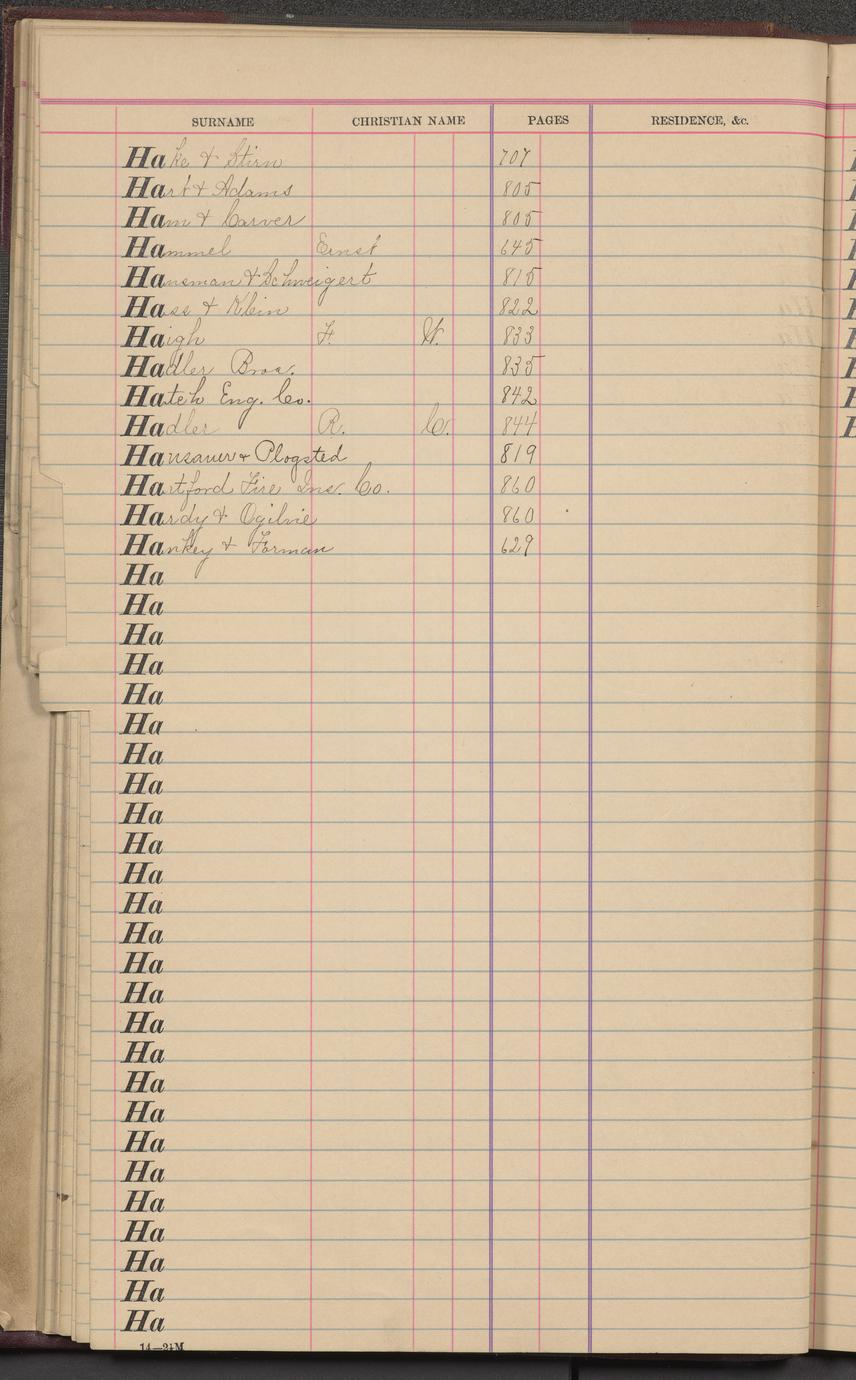 SURNAME CHRISTIAN NAME PAGES RESIDENCE, &c.
Hake & Stirn 707
Hart & Adams 805
Ham & Carver 805
Hammel Ernst 645
Hansman & Schweigert 815
Hass & Klein 822
Haigh F. W. 833
Hadler Bros. 835
Hatch Eng. Co. 842
Hadler R. C. 844
Hansauer & Plogsted 819
Hartford Fire Ins. Co. 860
Hardy & Ogilvie 860
Hankey & Forman 629
Ha
Ha
Ha
Ha
Ha
Ha
Ha
Ha
Ha
Ha
Ha
Ha
Ha
Ha
Ha
Ha
Ha
Ha
Ha
Ha
Ha
Ha
Ha
Ha
Ha
Ha